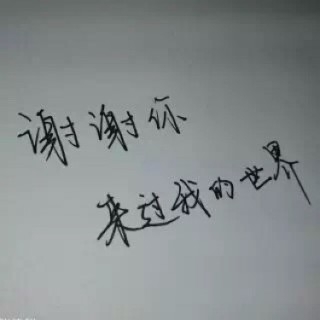 谢谢你
来过我的世界